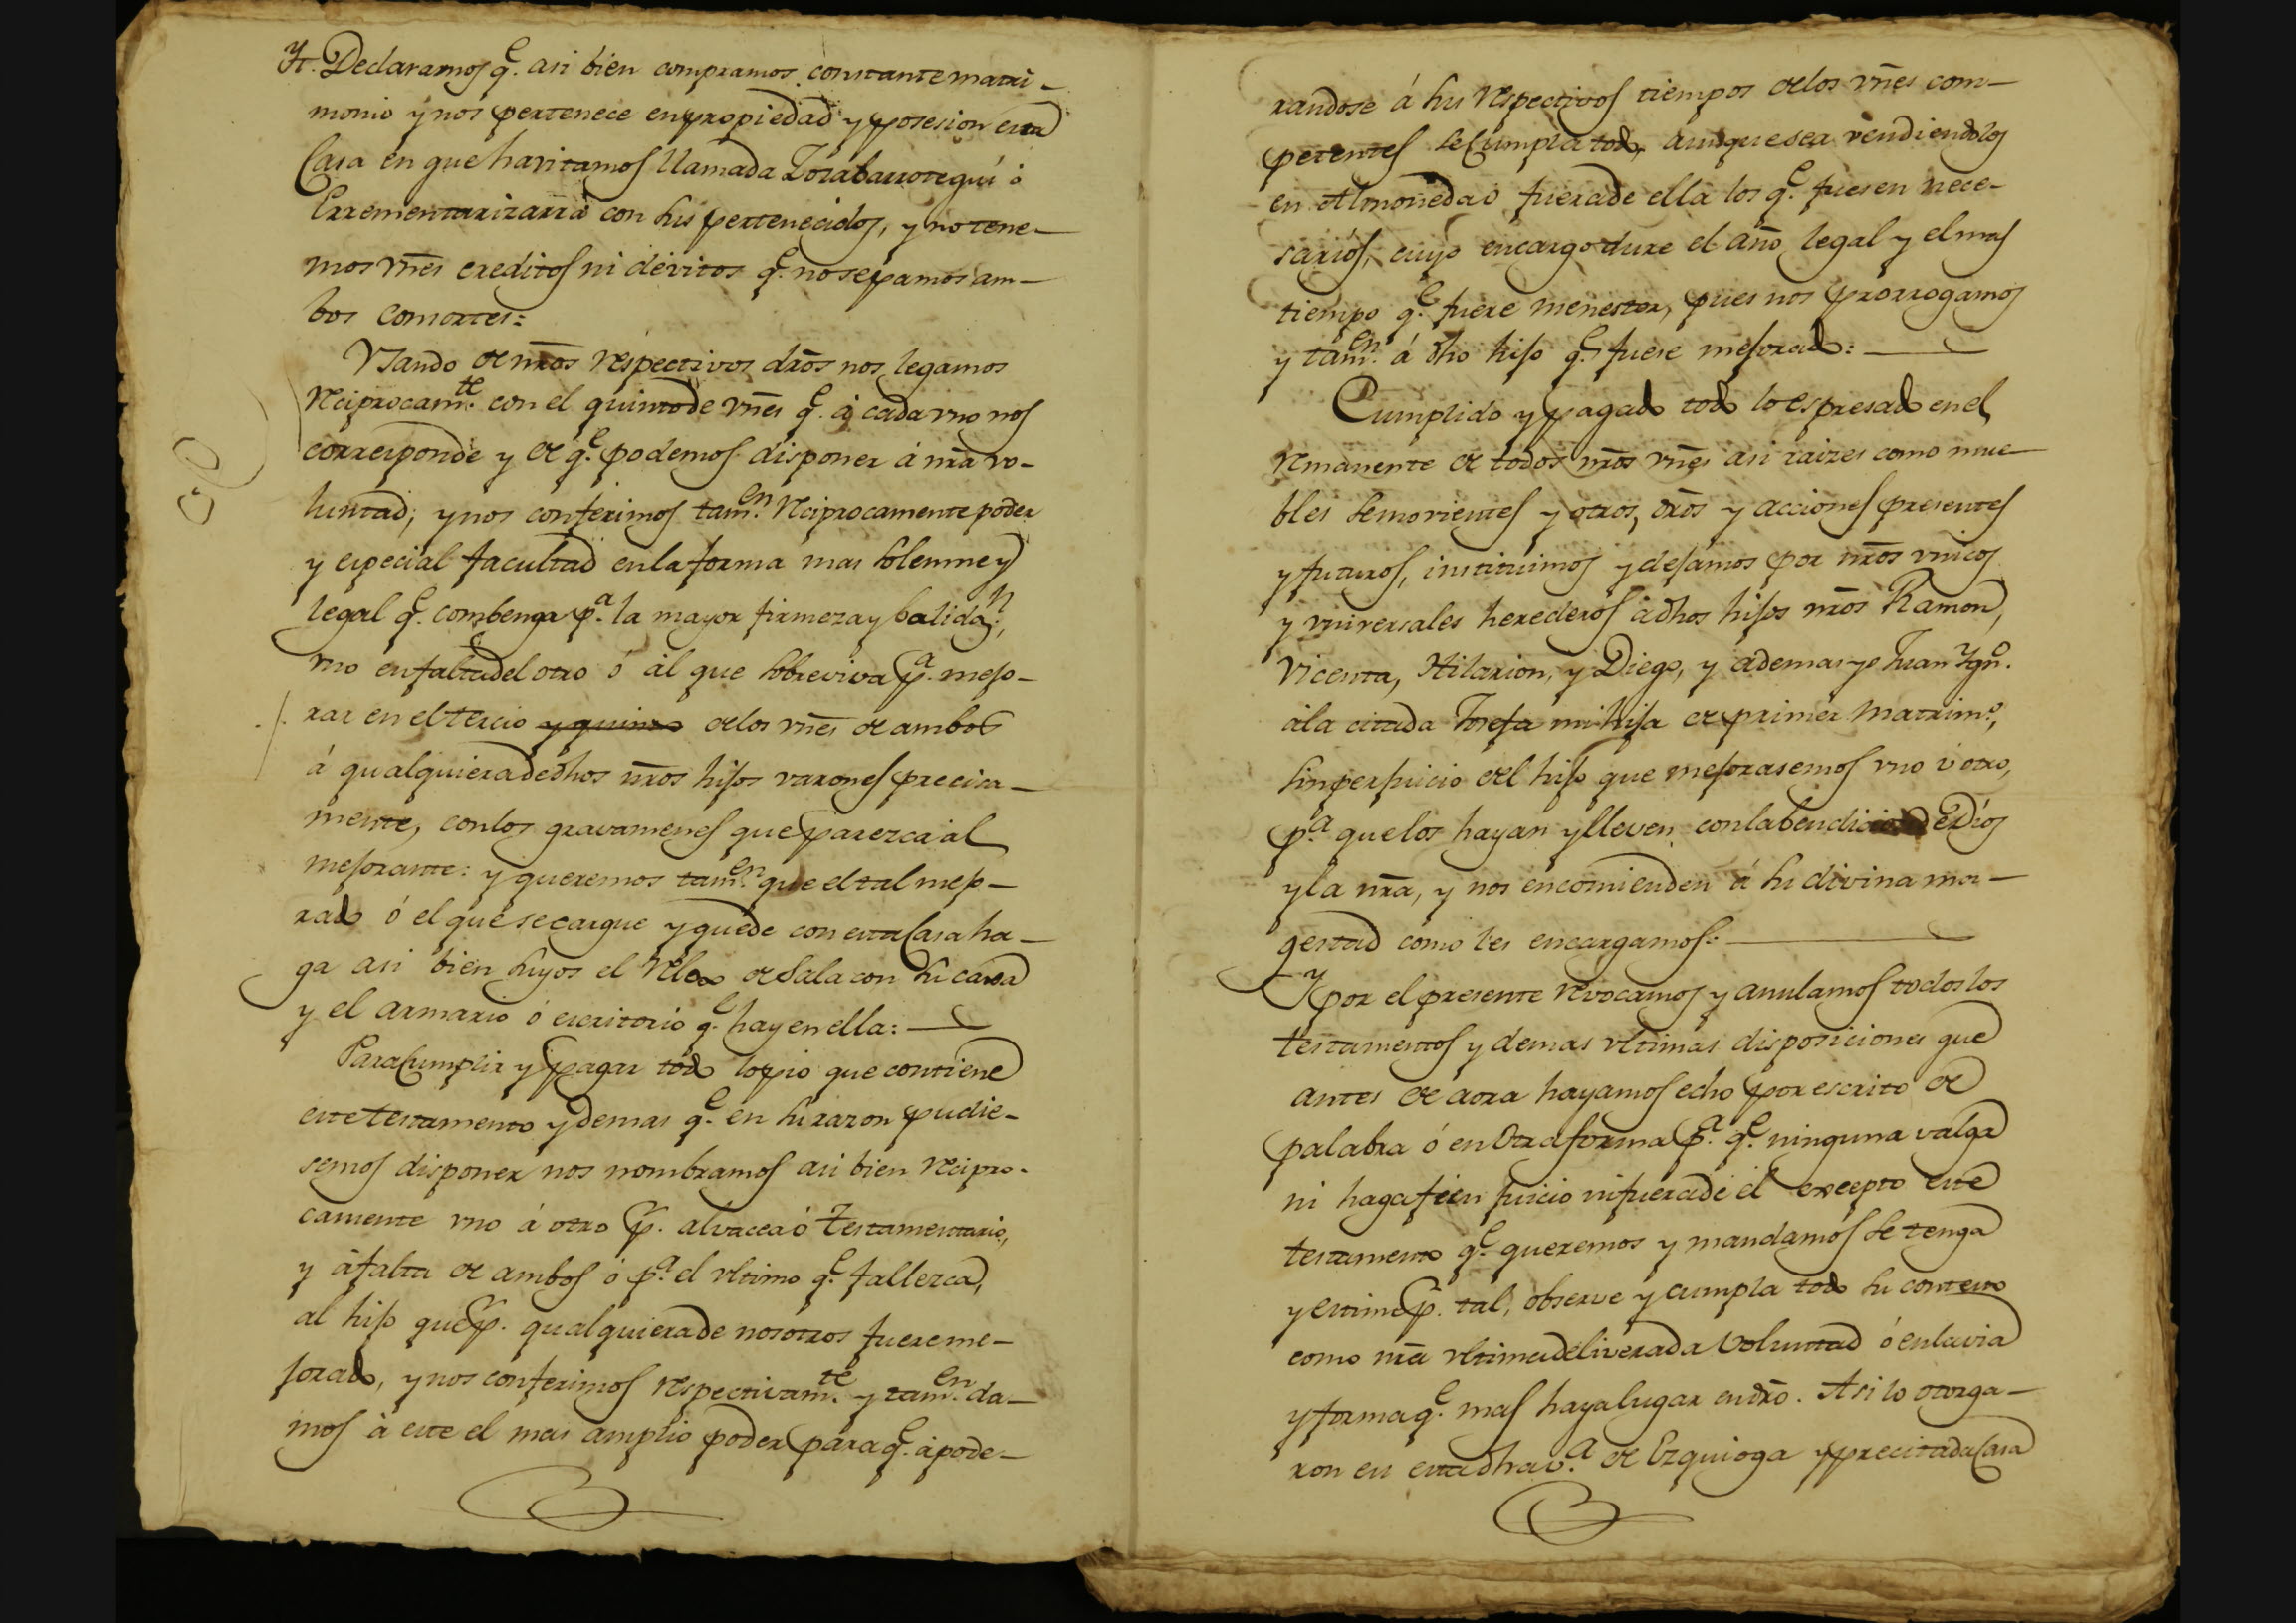 Yt. Declaramos q.e asi bien compramos constante matri-
monio y nos pertenece en propiedad y posesion esta
Casa en que havitamos llamada Zozabarrotegui ó
Errementarizarra con sus pertenecidos, y no tene-
mos vnes creditos ni dévitos q.e no sepamos am-
bos consortes:
Vsando de nrõs respectivos drõs nos legamos
reciprocam.te con el quinto de vnes q.e á cada vno nos
corresponde y de q.e podemos disponer á nrã vo-
luntad; y nos conferimos tam.en reciprocamente poder
y especial facultad en la forma mas solemne y
legal q.e combenga p.a la mayor firmeza y balidaz.n,
vno en falta del otro ó al que sobreviva p.a mejo-
rar en el tercio y quinto de los vnes de ambos
á qualquiera de dhos nrõs hijos varones precisa-
mente, con los gravamenes que parezca al
mejorante: y queremos tam.en que el tal mejo-
rado ó el que se cargue y quede con esta Casa ha-
ga asi bien suyos el relox de Sala con su caxa
y el armario ó escritorio q.e hay en ella:
Para Cumplir y pagar todo lo pio que contiene
este testamento y demas q.e en su razon pudie-
semos disponer nos nombramos asi bien recipro-
camente vno á otro p.r alvacea ó Testamentario,
y á falta de ambos ó p.a el vltimo q.e fallezca,
al hijo que p.r qualquiera de nosotros fuere me-
jorado, y nos conferimos respectivam.te y tam.en da-
mos à este el mas amplio poder para q.e apode-
randose á sus respectivos tiempos de los vnes com-
petentes se Cumpla todo, aunque sea vendiendolos
en Almoneda ó fuera de ella los q.e fuesen nece-
sarios, cuyo encargo dure el año legal y el mas
tiempo q.e fuere menester, pues nos prorrogamos
y tam.en á dho hijo q.e fuese mejorado:
Cumplido y pagado todo lo espresado en el
remanente de todos nrõs vnes asi raizes como mue
bles semovientes y otros, drõs y acciones presentes
y futuros, instituimos y dejamos por nrõs vnicos
y vniversales herederos á dhos hijos nrõs Ramon,
Vicenta, Hilarion, y Diego, y ademas yo Juan Ygn.o
á la citada Josefa mi hija de primer Matrim.o,
sin perjuicio del hijo que mejorasemos vno ú otro,
p.a que los hayan y lleven con la bendicion de Dios
y la nrã, y nos encomienden á su divina ma-
gestad como les encargamos:
Y por el presente revocamos y anulamos todos los
testamentos y demas vltimas disposiciones que
antes de aora hayamos echo por escrito de
palabra ó en Otra forma p.a q.e ninguna valga
ni haga fe en juicio ni fuera de él excepto este
testamento q.e queremos y mandamos se tenga
y estime p.r tal, observe y cumpla todo su contesto
como nrã vltima deliverada voluntad ó en la via
y forma q.e mas haya lugar en drõ. Asi lo otorga-
ron en esta dha v.a de Ezquioga y precitada Casa